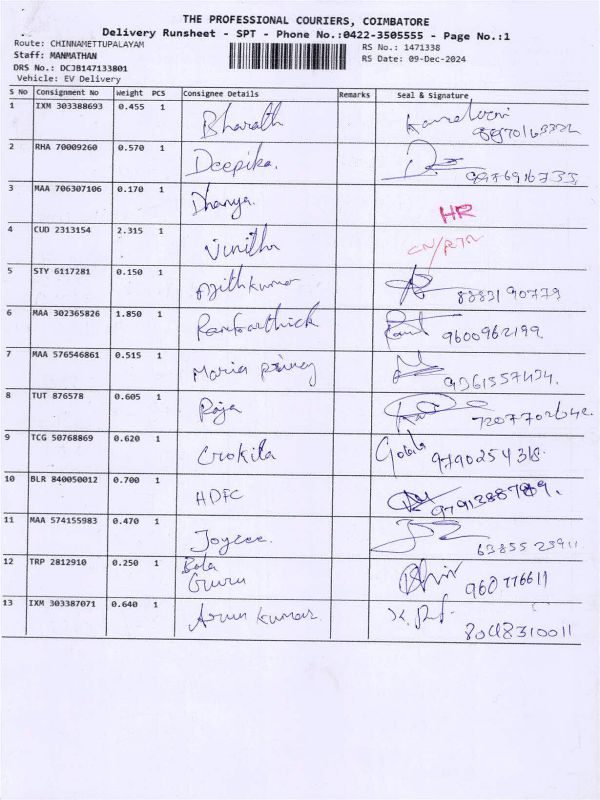 THE PROFESSIONAL COURIERS, COIMBATORE
Delivery Runsheet - SPT - Phone No.:0422-3505555 - Page No.:1
Route: CHINNAMETTUPALAYAM
RS No.: 1471338
Staff: MANMATHAN
RS Date: 09-Dec-2024
DRS No.: DCJB147133801
Vehicle: EV Delivery
S No Consignment No Weight PCS Consignee Details Remarks Seal & Signature
1 IXM 303388693 0.455 1 Bharath
2 RHA 70009260 0.570 1 Deepika.
3 MAA 706307106 0.170 1 Dhanya. HR
4 CUD 2313154 2.315 1 Vinitha CN/RTN
5 STY 6117281 0.150 1 Ajithkumar 8883190779
6 MAA 302365826 1.850 1 Ramkarthick 9600962199.
7 MAA 576546861 0.515 1 Maria 9361357434.
8 TUT 876578 0.605 1 Raja 7207702642
9 TCG 50768869 0.620 1 Crokita Gokila 9790254318.
10 BLR 840050012 0.700 1 HDFC
11 MAA 574155983 0.470 1 Joycee. 6385523911
12 TRP 2812910 0.250 1 Bala
Guru 960776611
13 IXM 303387071 0.640 1 Arun kumar 8048310011